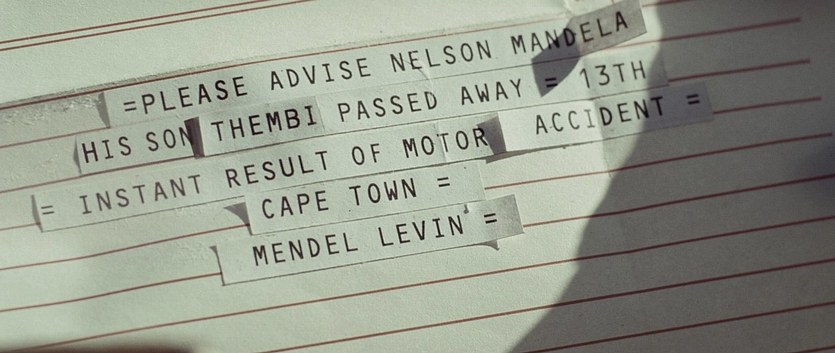 =PLEASE ADVISE NELSON MANDELA
HIS SON THEMBI PASSED AWAY = 13TH
= INSTANT RESULT OF MOTOR ACCIDENT =
CAPE TOWN =
MENDEL LEVIN =